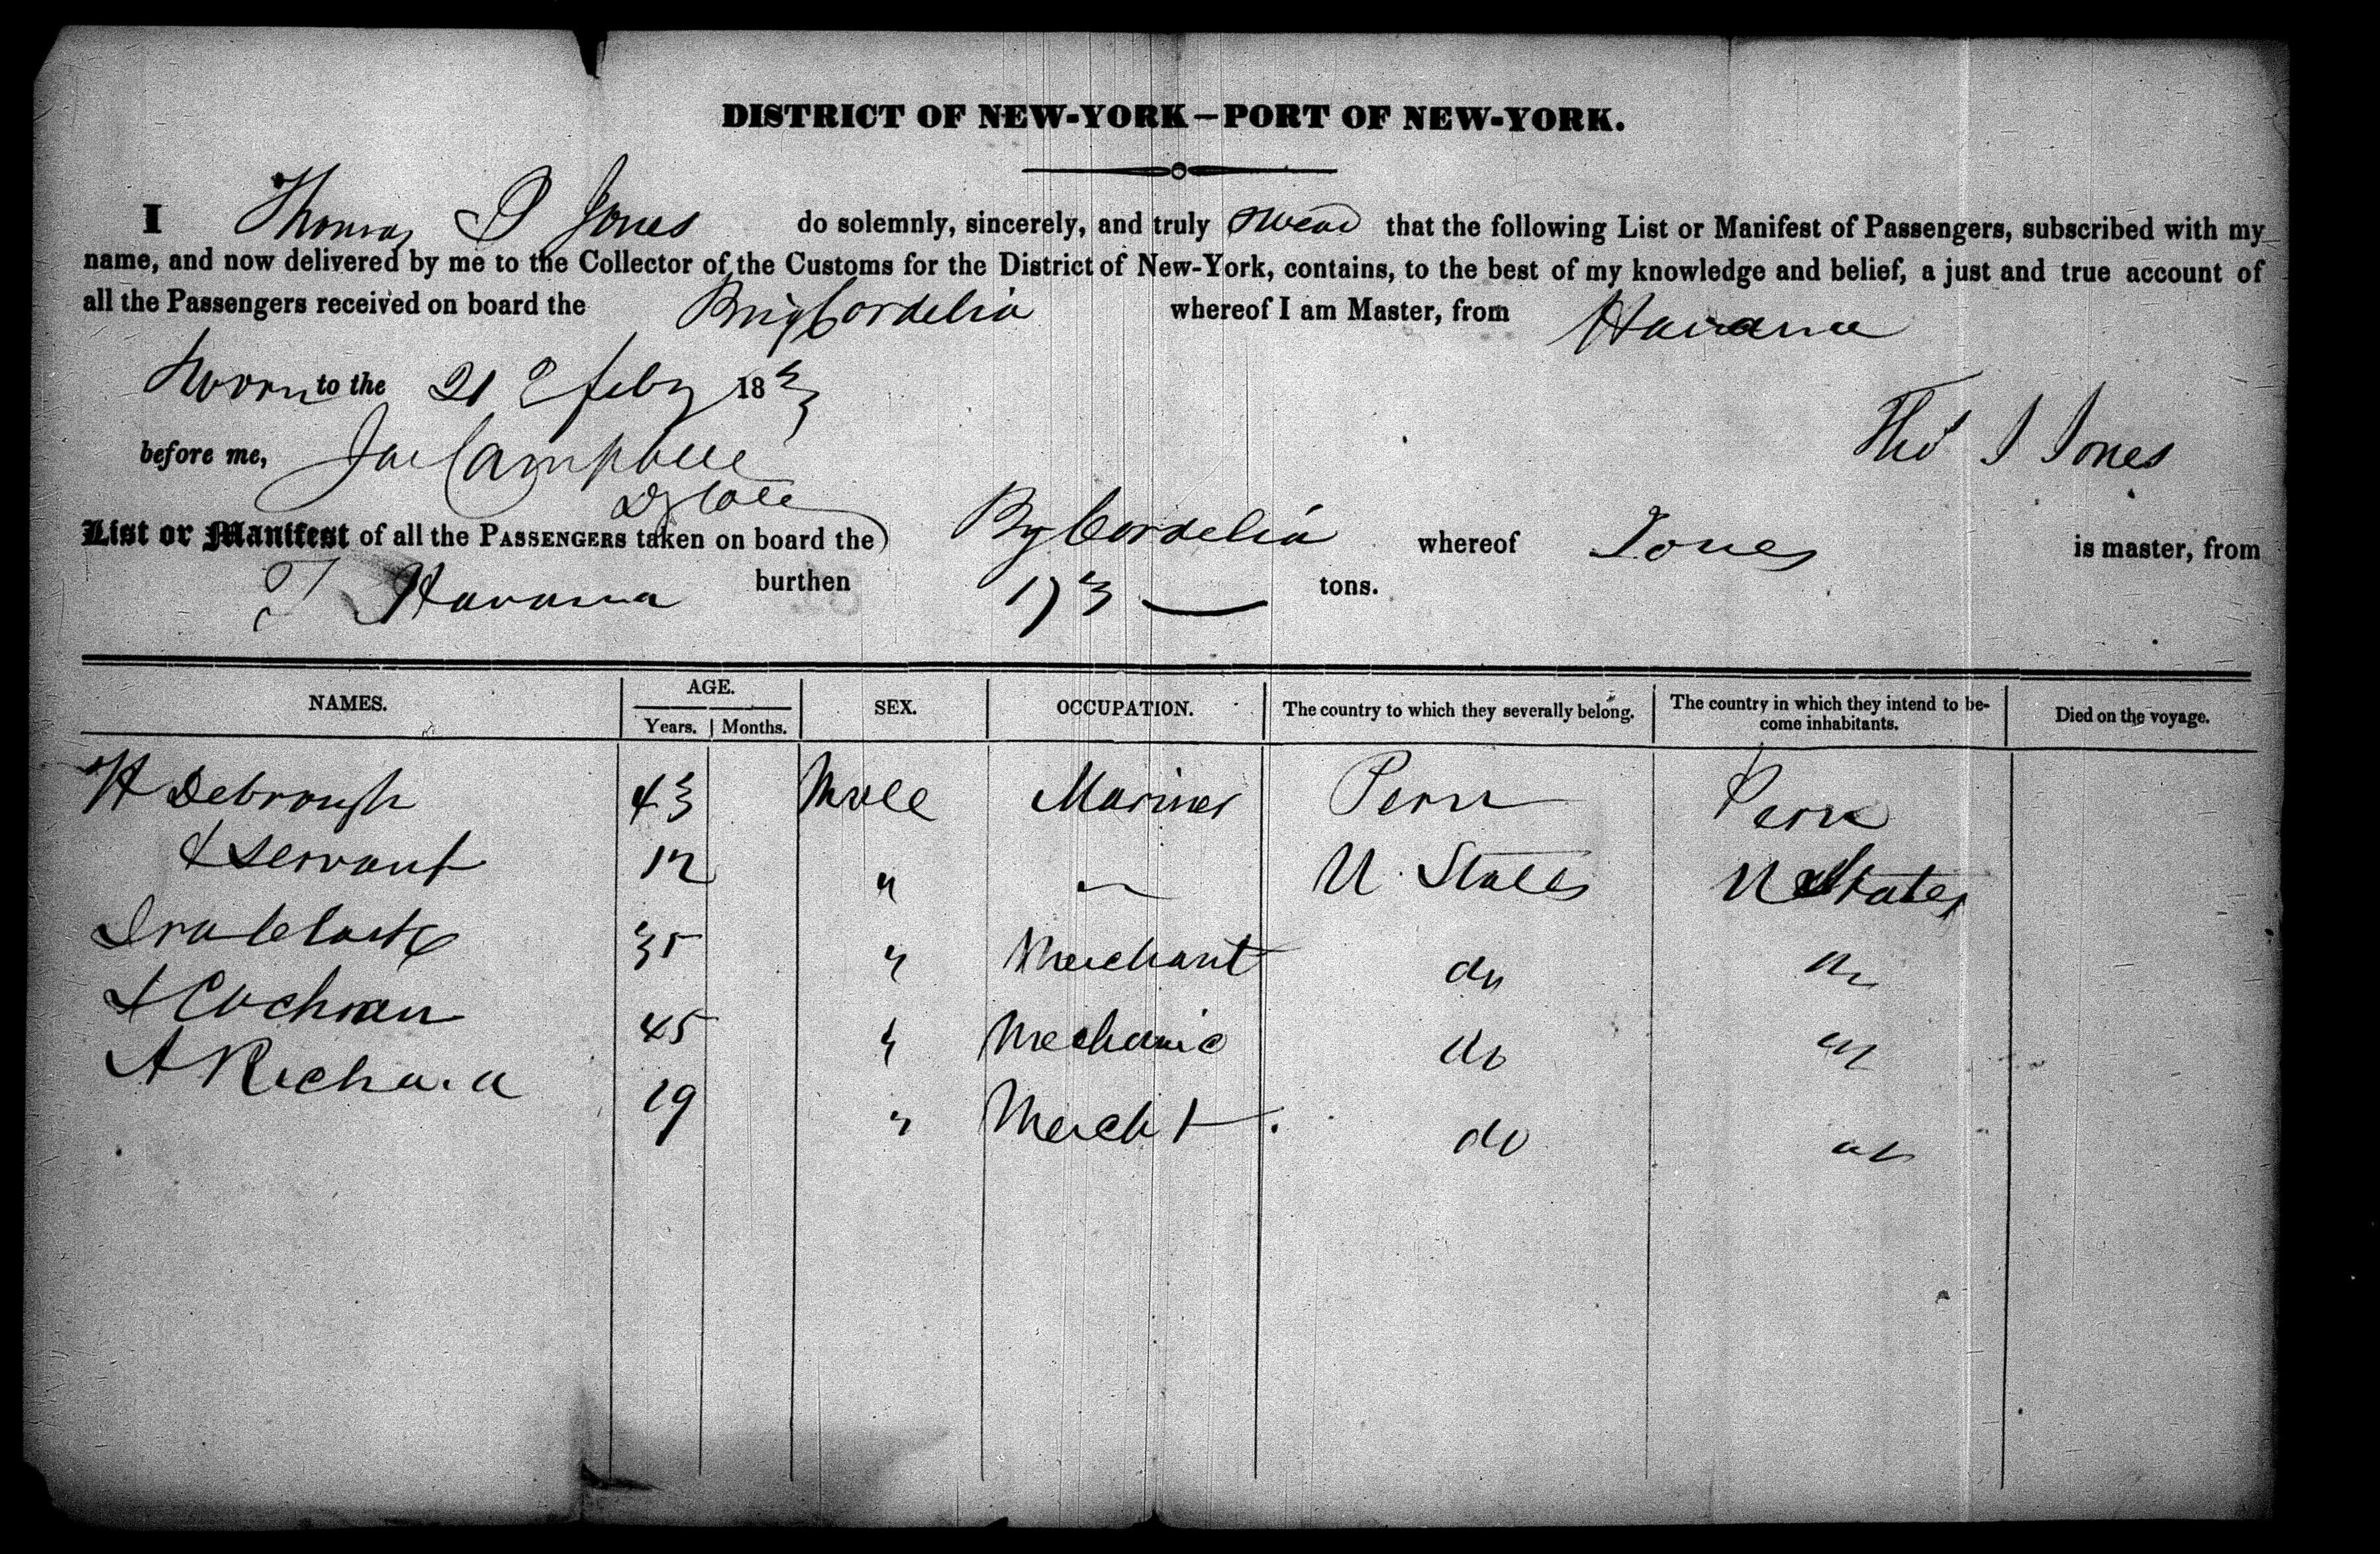 DISTRICT OF NEW-YORK—PORT OF NEW-YORK.
I Thomas Jones do solemnly, sincerely, and truly swear that the following List or Manifest of Passengers, subscribed with my
name, and now delivered by me to the Collector of the Customs for the District of New-York, contains, to the best of my knowledge and belief, a just and true account of
all the Passengers received on board the Brig Cordelia whereof I am Master, from Havana
Sworn to the 21 Feby 1833
before me, Campbell Thos Jones
D Coll
List or Manifest of all the PASSENGERS taken on board the Bg Cordelia whereof Jones is master, from
Havana burthen 173 — tons.
NAMES. AGE. SEX. OCCUPATION. The country to which they severally belong. The country in which they intend to be-come inhabitants. Died on the voyage.
Years. Months.
H Debrough 43 Male Mariner Peru Peru
& Servant 12 " — U. States U States
Ira 35 " Merchant do do
Cochran 45 " Mechanic do do
A Richard 19 " Mercht do do